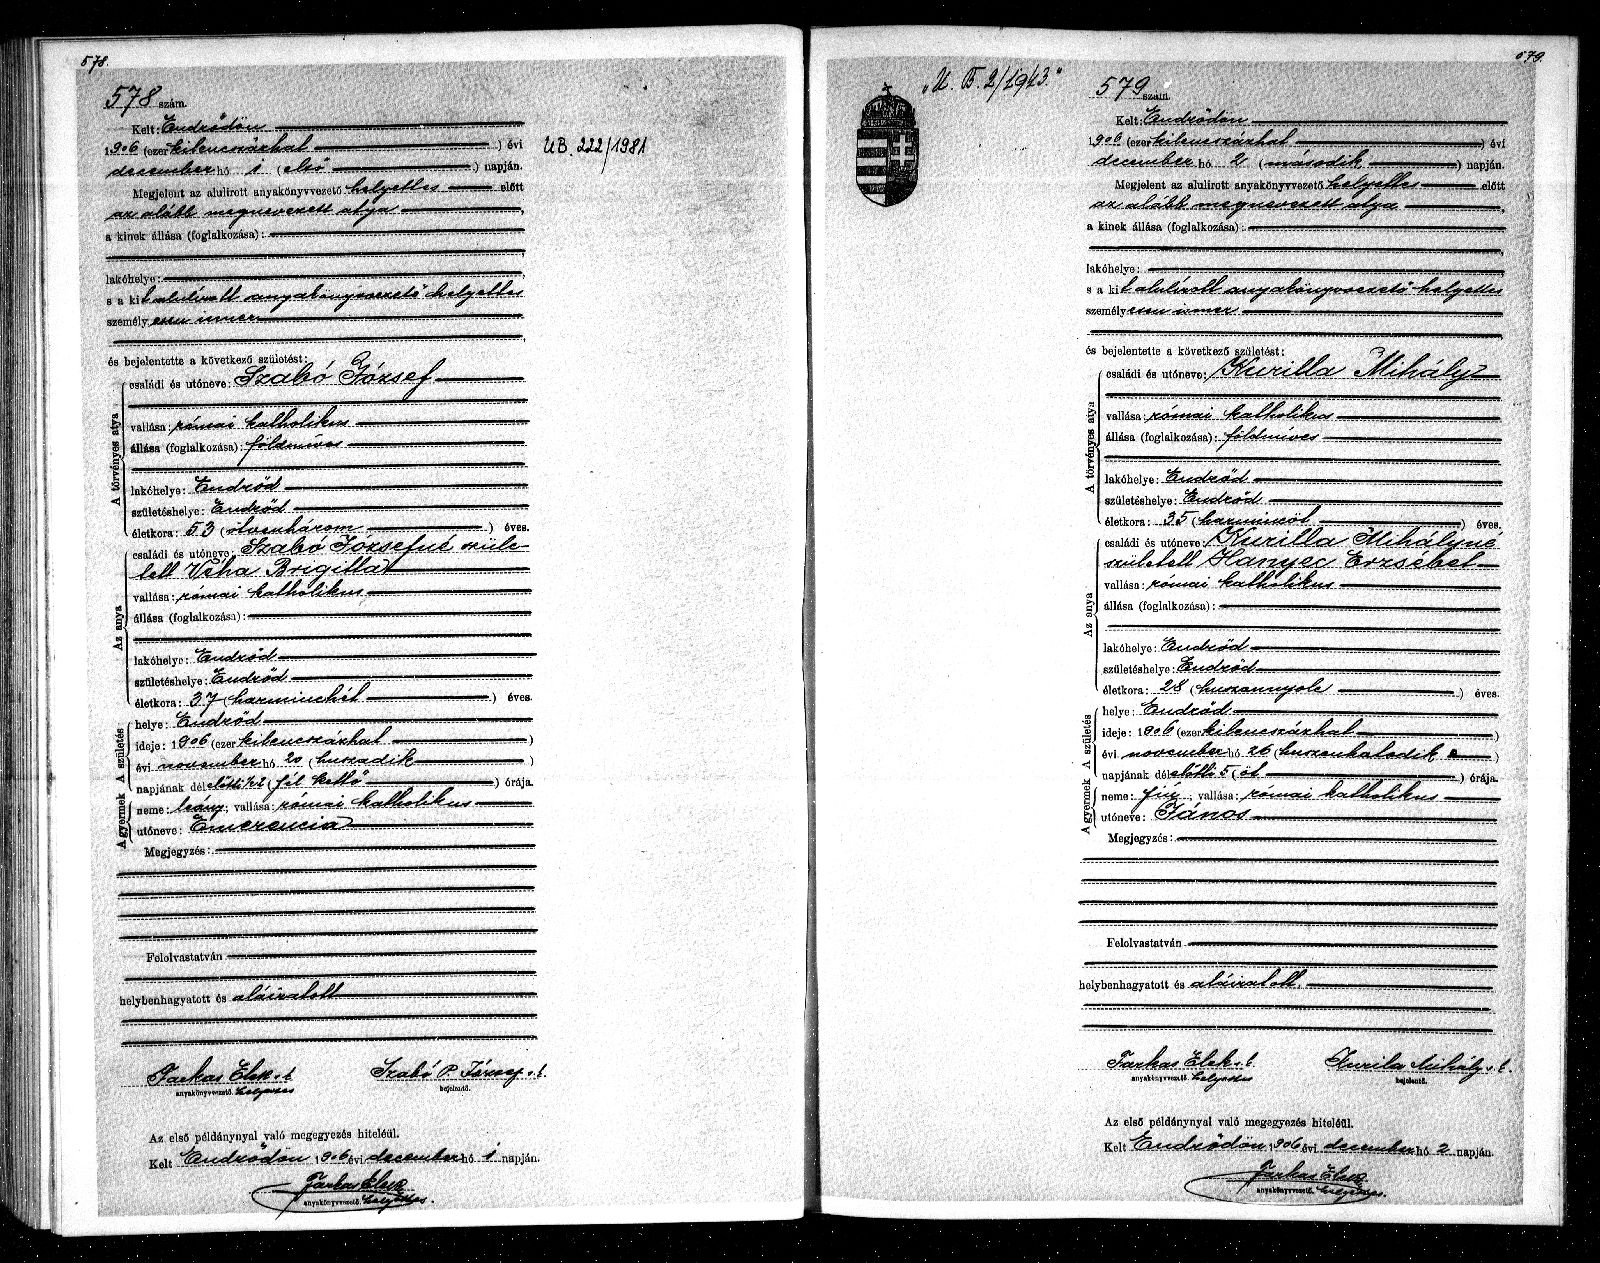 578.
578 szám.
Kelt: Endrődön
1906 (ezer kilenczszázhat ) évi
december hó 1 (első ) napján.
Megjelent az alulirott anyakönyvvezető helyettes előtt
az alább megnevezett atya,
a kinek állása (foglalkozása):
lakóhelye:
s a kit alulírott anyakönyvvezető helyettes
személyesen ismer
és bejelentette a következő születést:
A törvényes atya
családi és utóneve: Szabó József
vallása: római katholikus
állása (foglalkozása): földmíves
lakóhelye: Endrőd
születéshelye: Endrőd
életkora: 53 (ötvenhárom ) éves.
Az anya
családi és utóneve: Szabó Józsefné szüle-
tett Véha Brigitta
vallása: római katholikus
állása (foglalkozása):
lakóhelye: Endrőd
születéshelye: Endrőd
életkora: 37 (harminchét ) éves.
A születés
helye: Endrőd
ideje: 1906 (ezer kilenczszázhat )
évi november hó 20 (huszadik )
napjának délelőtti ½2 (fél kettő ) órája.
A gyermek
neme: leány; vallása: római katholikus
utóneve: Emerencia
Megjegyzés:
Felolvastatván
helybenhagyatott és aláíratott
Farkas Elek s.k. Szabó P. József s.k.
anyakönyvvezető. helyettes bejelentő.
Az első példánynyal való megegyezés hiteléül.
Kelt Endrődön 1906 évi december hó 1 napján.
Farkas Elek
anyakönyvvezető. helyettes.
UB. 222/1981
579.
"U. B. 2/1943."
579 szám.
Kelt: Endrődön
1906 (ezer kilenczszázhat ) évi
december hó 2 (második ) napján.
Megjelent az alulirott anyakönyvvezető helyettes előtt
az alább megnevezett atya,
a kinek állása (foglalkozása):
lakóhelye:
s a kit alulírott anyakönyvvezető helyettes
személyesen ismer
és bejelentette a következő születést:
A törvényes atya
családi és utóneve: Kurilla Mihály
vallása: római katholikus
állása (foglalkozása): földmíves
lakóhelye: Endrőd
születéshelye: Endrőd
életkora: 35 (harminczöt ) éves.
Az anya
családi és utóneve: Kurilla Mihályné
született Hanyec Erzsébet
vallása: római katholikus
állása (foglalkozása):
lakóhelye: Endrőd
születéshelye: Endrőd
életkora: 28 (huszonnyolc ) éves.
A születés
helye: Endrőd
ideje: 1906 (ezer kilenczszázhat )
évi november hó 26 (huszonhatodik )
napjának délelőtti 5 (öt ) órája.
A gyermek
neme: fiú; vallása: római katholikus
utóneve: János
Megjegyzés:
Felolvastatván
helybenhagyatott és aláíratott.
Farkas Elek s.k. Kurila Mihály s.k.
anyakönyvvezető. helyettes bejelentő.
Az első példánynyal való megegyezés hiteléül.
Kelt Endrődön 1906 évi december hó 2 napján.
Farkas Elek
anyakönyvvezető. helyettes.